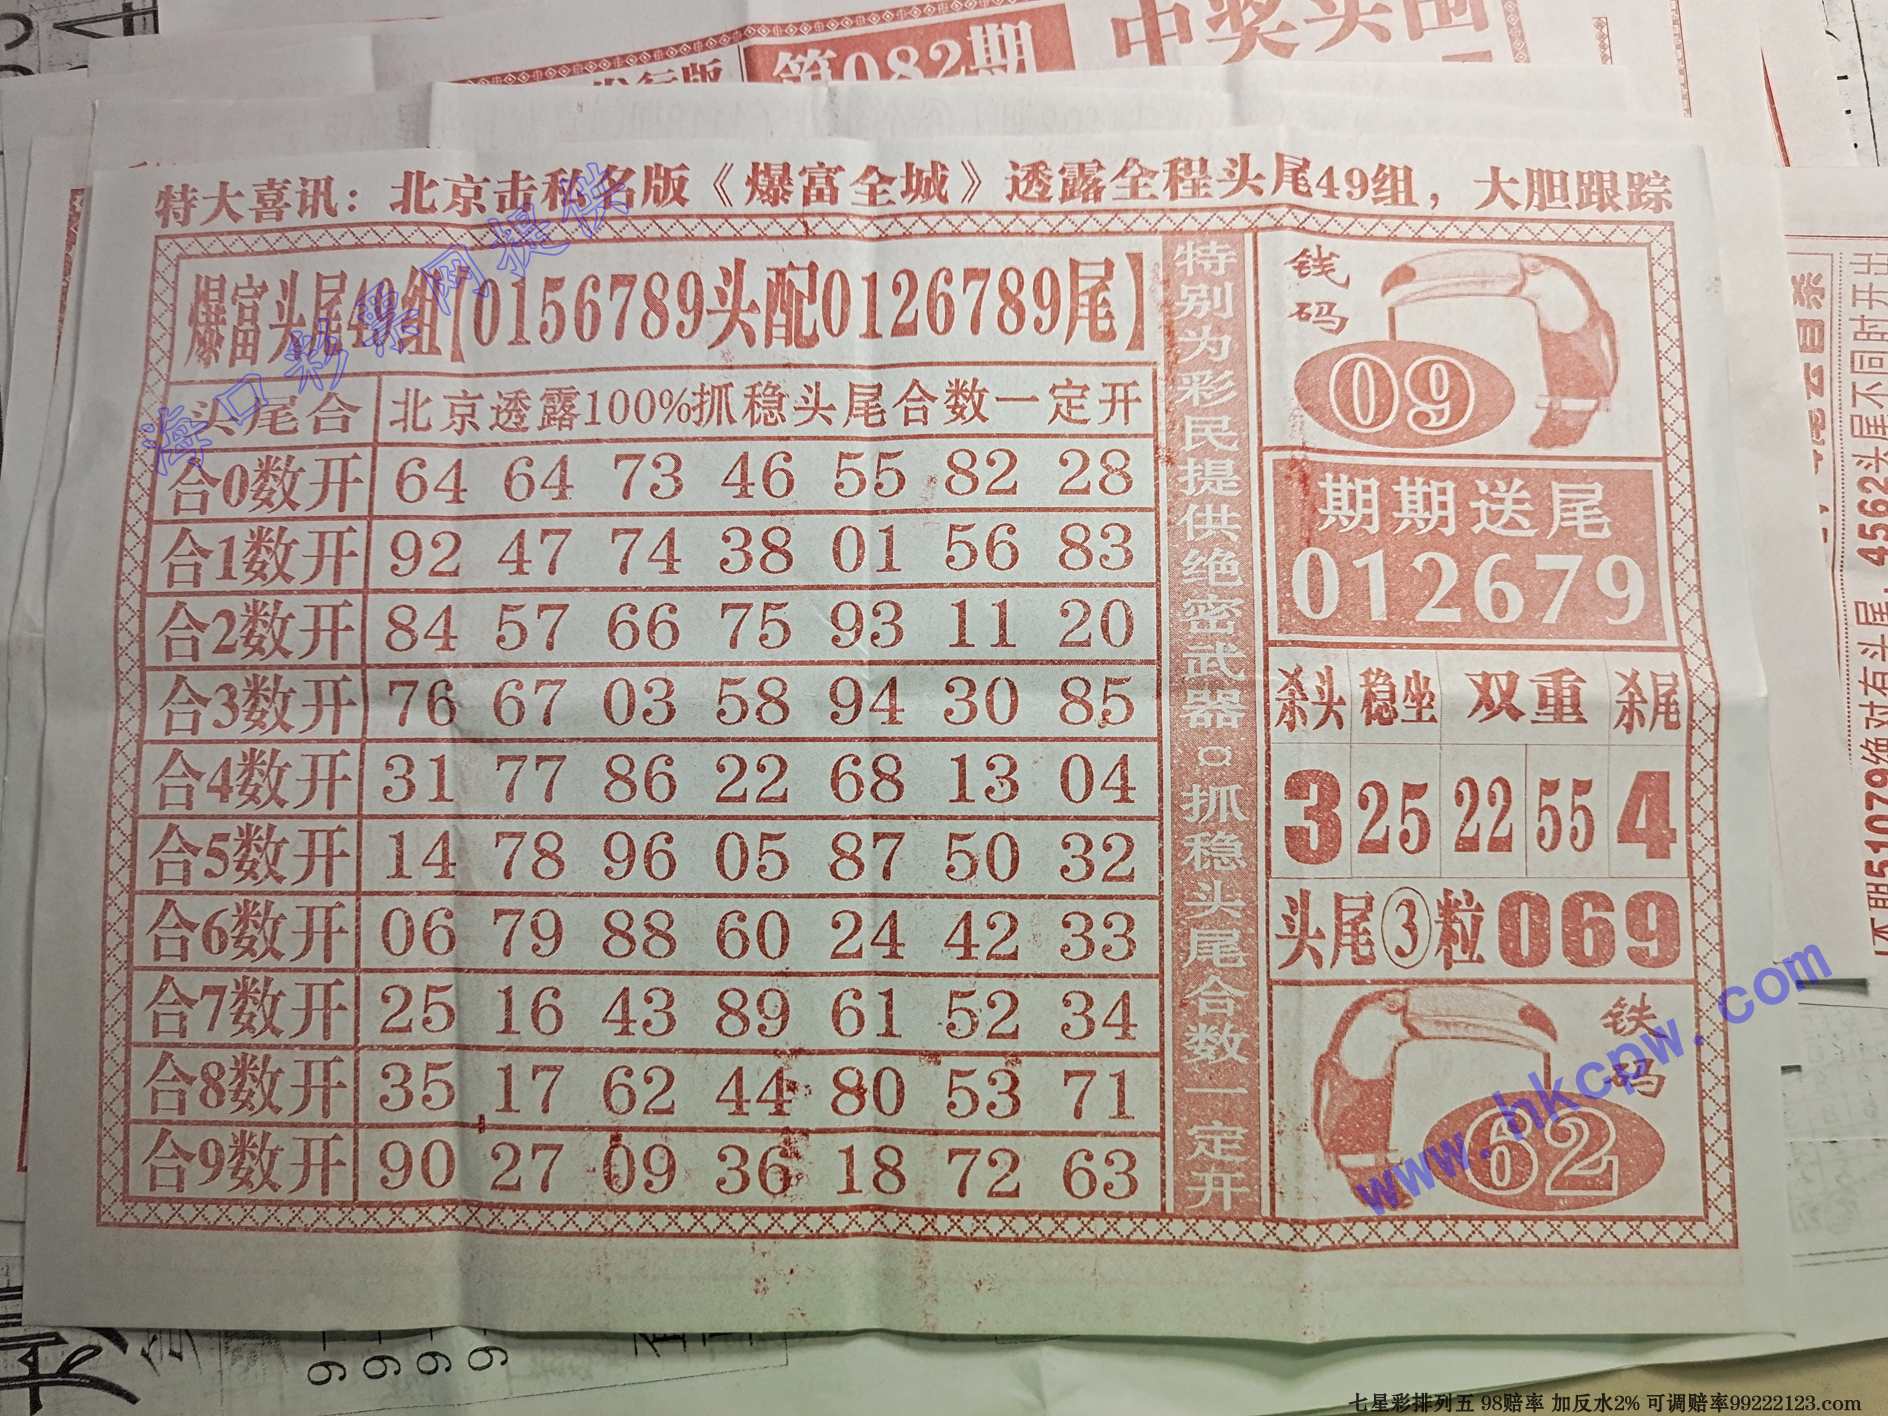 第082期
中奖头

特大喜讯：北京击私名版《爆富全城》透露全程头尾49组，大胆跟踪
爆富头尾49组【0156789头配0126789尾】
头尾合 北京透露100%抓稳头尾合数一定开
合0数开 64 64 73 46 55 82 28
合1数开 92 47 74 38 01 56 83
合2数开 84 57 66 75 93 11 20
合3数开 76 67 03 58 94 30 85
合4数开 31 77 86 22 68 13 04
合5数开 14 78 96 05 87 50 32
合6数开 06 79 88 60 24 42 33
合7数开 25 16 43 89 61 52 34
合8数开 35 17 62 44 80 53 71
合9数开 90 27 09 36 18 72 63
特别为彩民提供绝密武器¤抓稳头尾合数一定开
钱码
09
期期送尾
012679
杀头 稳坐 双重 杀尾
3 25 22 55 4
头尾③粒069
铁码
62
海口彩票网提供
www.hkcpw.com
4562头尾不同时开出
51079绝对有头尾
七星彩排列五 98赔率 加反水2% 可调赔率99222123.com